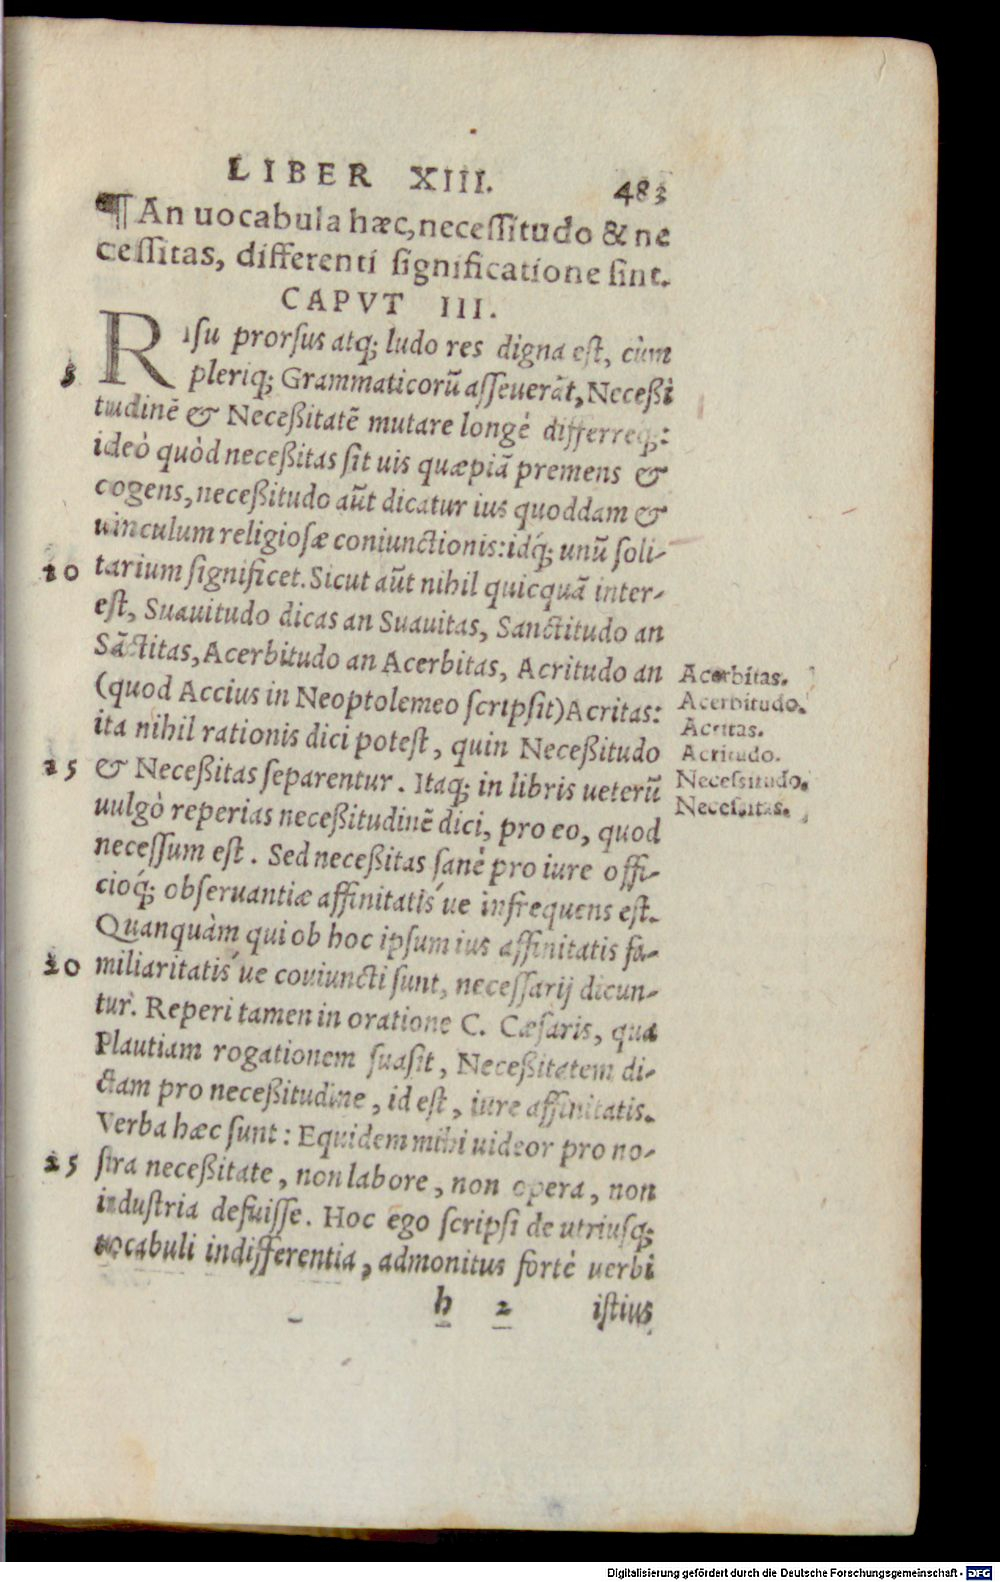 LIBER XIII. 483
¶ An uocabula hæc, necessitudo & ne
cessitas, differenti significatione sint.
CAPVT III.
RIsu prorsus atq; ludo res digna est, cùm
5 pleriq; Grammaticorũ asseuerãt, Neceßi
tudinẽ & Neceßitatẽ mutare longè differreq;:
ideò quòd neceßitas sit uis quæpiã premens &
cogens, neceßitudo aũt dicatur ius quoddam &
uinculum religiosæ coniunctionis: idq́; unũ soli-
10 tarium significet. Sicut aũt nihil quicquã inter-
est, Suauitudo dicas an Suauitas, Sanctitudo an
Sãctitas, Acerbitudo an Acerbitas, Acritudo an
(quod Accius in Neoptolemeo scripsit) Acritas:
ita nihil rationis dici potest, quin Neceßitudo
15 & Neceßitas separentur. Itaq; in libris ueterũ
uulgò reperias neceßitudinẽ dici, pro eo, quod
necessum est. Sed neceßitas sanè pro iure offi-
cioq́; obseruantiæ affinitatis´ue infrequens est.
Quanquàm qui ob hoc ipsum ius affinitatis fa-
20 miliaritatis´ue coniuncti sunt, necessarij dicun-
tur. Reperi tamen in oratione C. Cæsaris, qua
Plautiam rogationem suasit, Neceßitatem di-
ctam pro neceßitudine, id est, iure affinitatis.
Verba hæc sunt: Equidem mihi uideor pro no-
25 stra neceßitate, non labore, non opera, non
industria defuisse. Hoc ego scripsi de utriusq;
uocabuli indifferentia, admonitus fortè uerbi
h 2 istius
Acerbitas.
Acerbitudo.
Acritas.
Acritudo.
Necessitudo.
Necessitas.
Digitalisierung gefördert durch die Deutsche Forschungsgemeinschaft - DFG